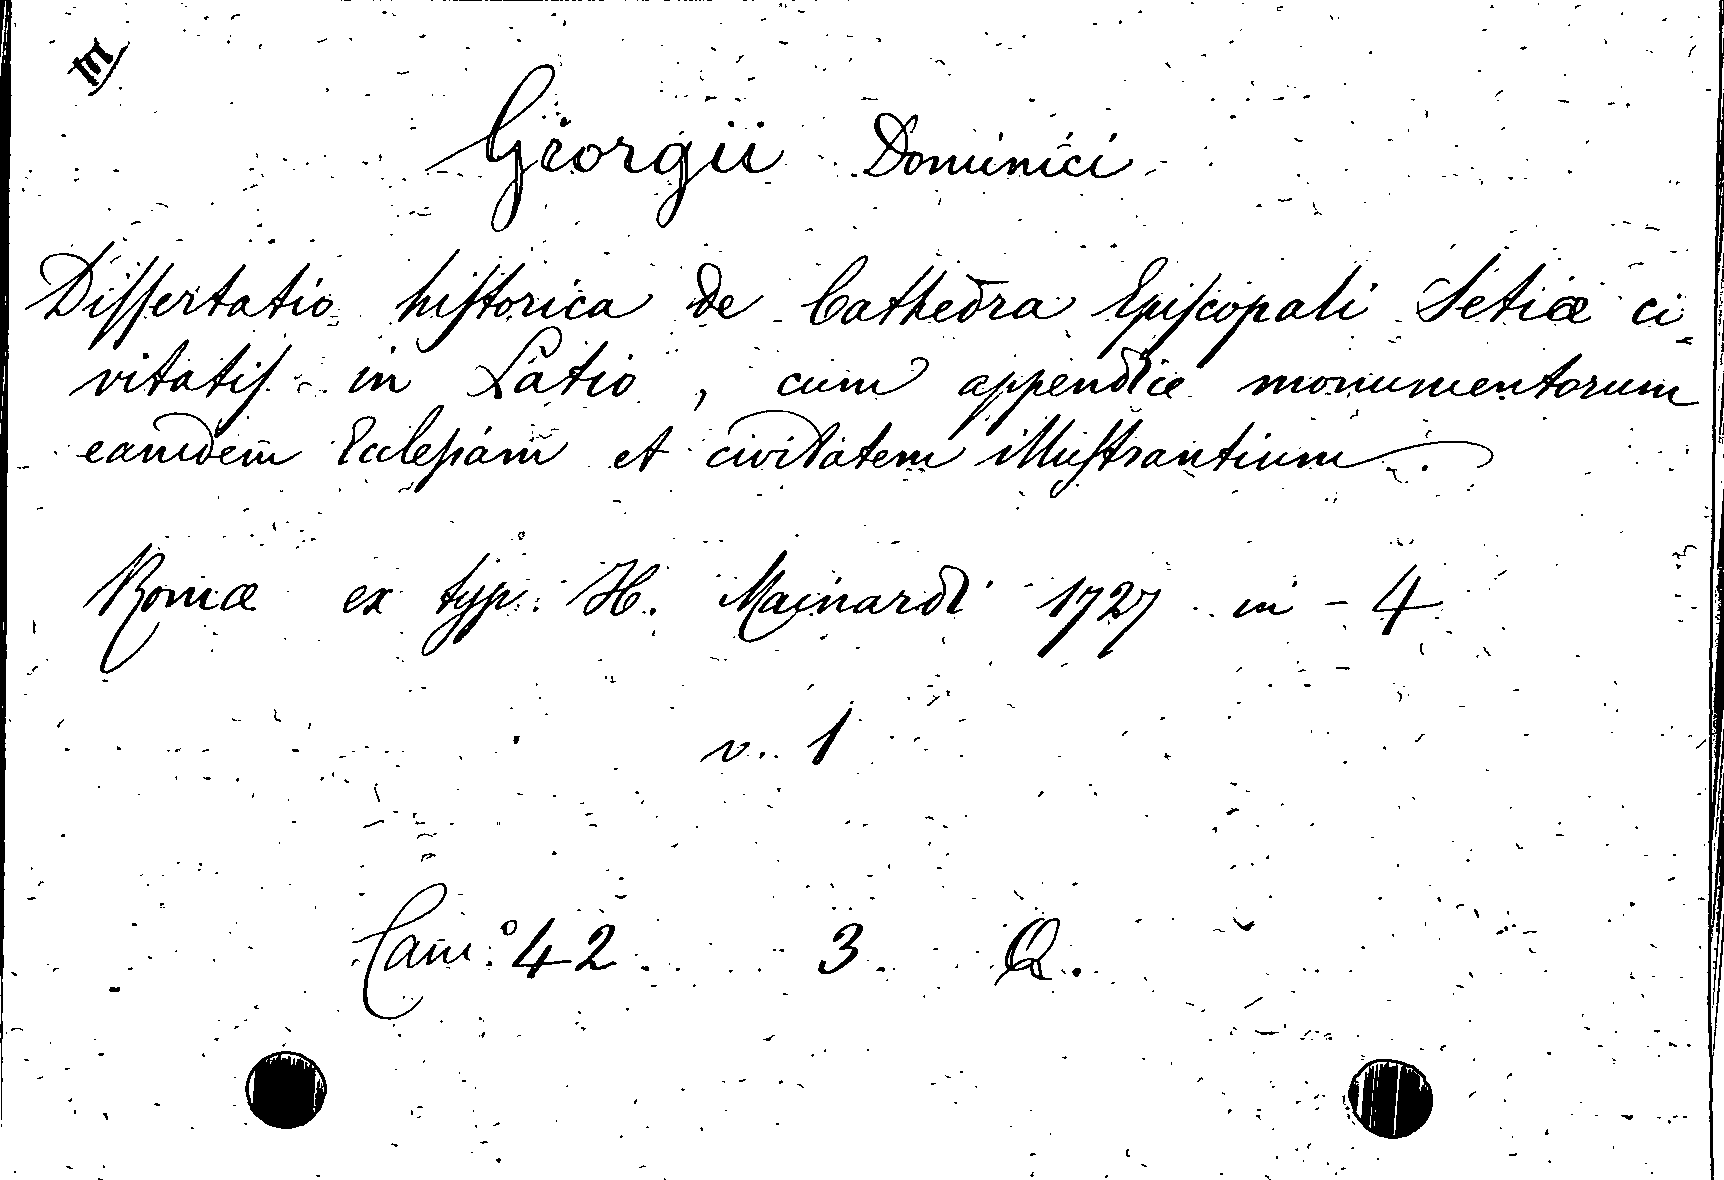 III
Georgii Dominici
Diſsertatio hiſtorica de Cathedra Epiſcopali Setiæ ci-
vitatiſ in Latio, cum appendice monumentorum
eamdem Eccleſiam et civitatem illuſtrantium.
Romæ ex typ. H. Mainardi 1727 in-4
v. 1
Cam.° 42. 3. Q.